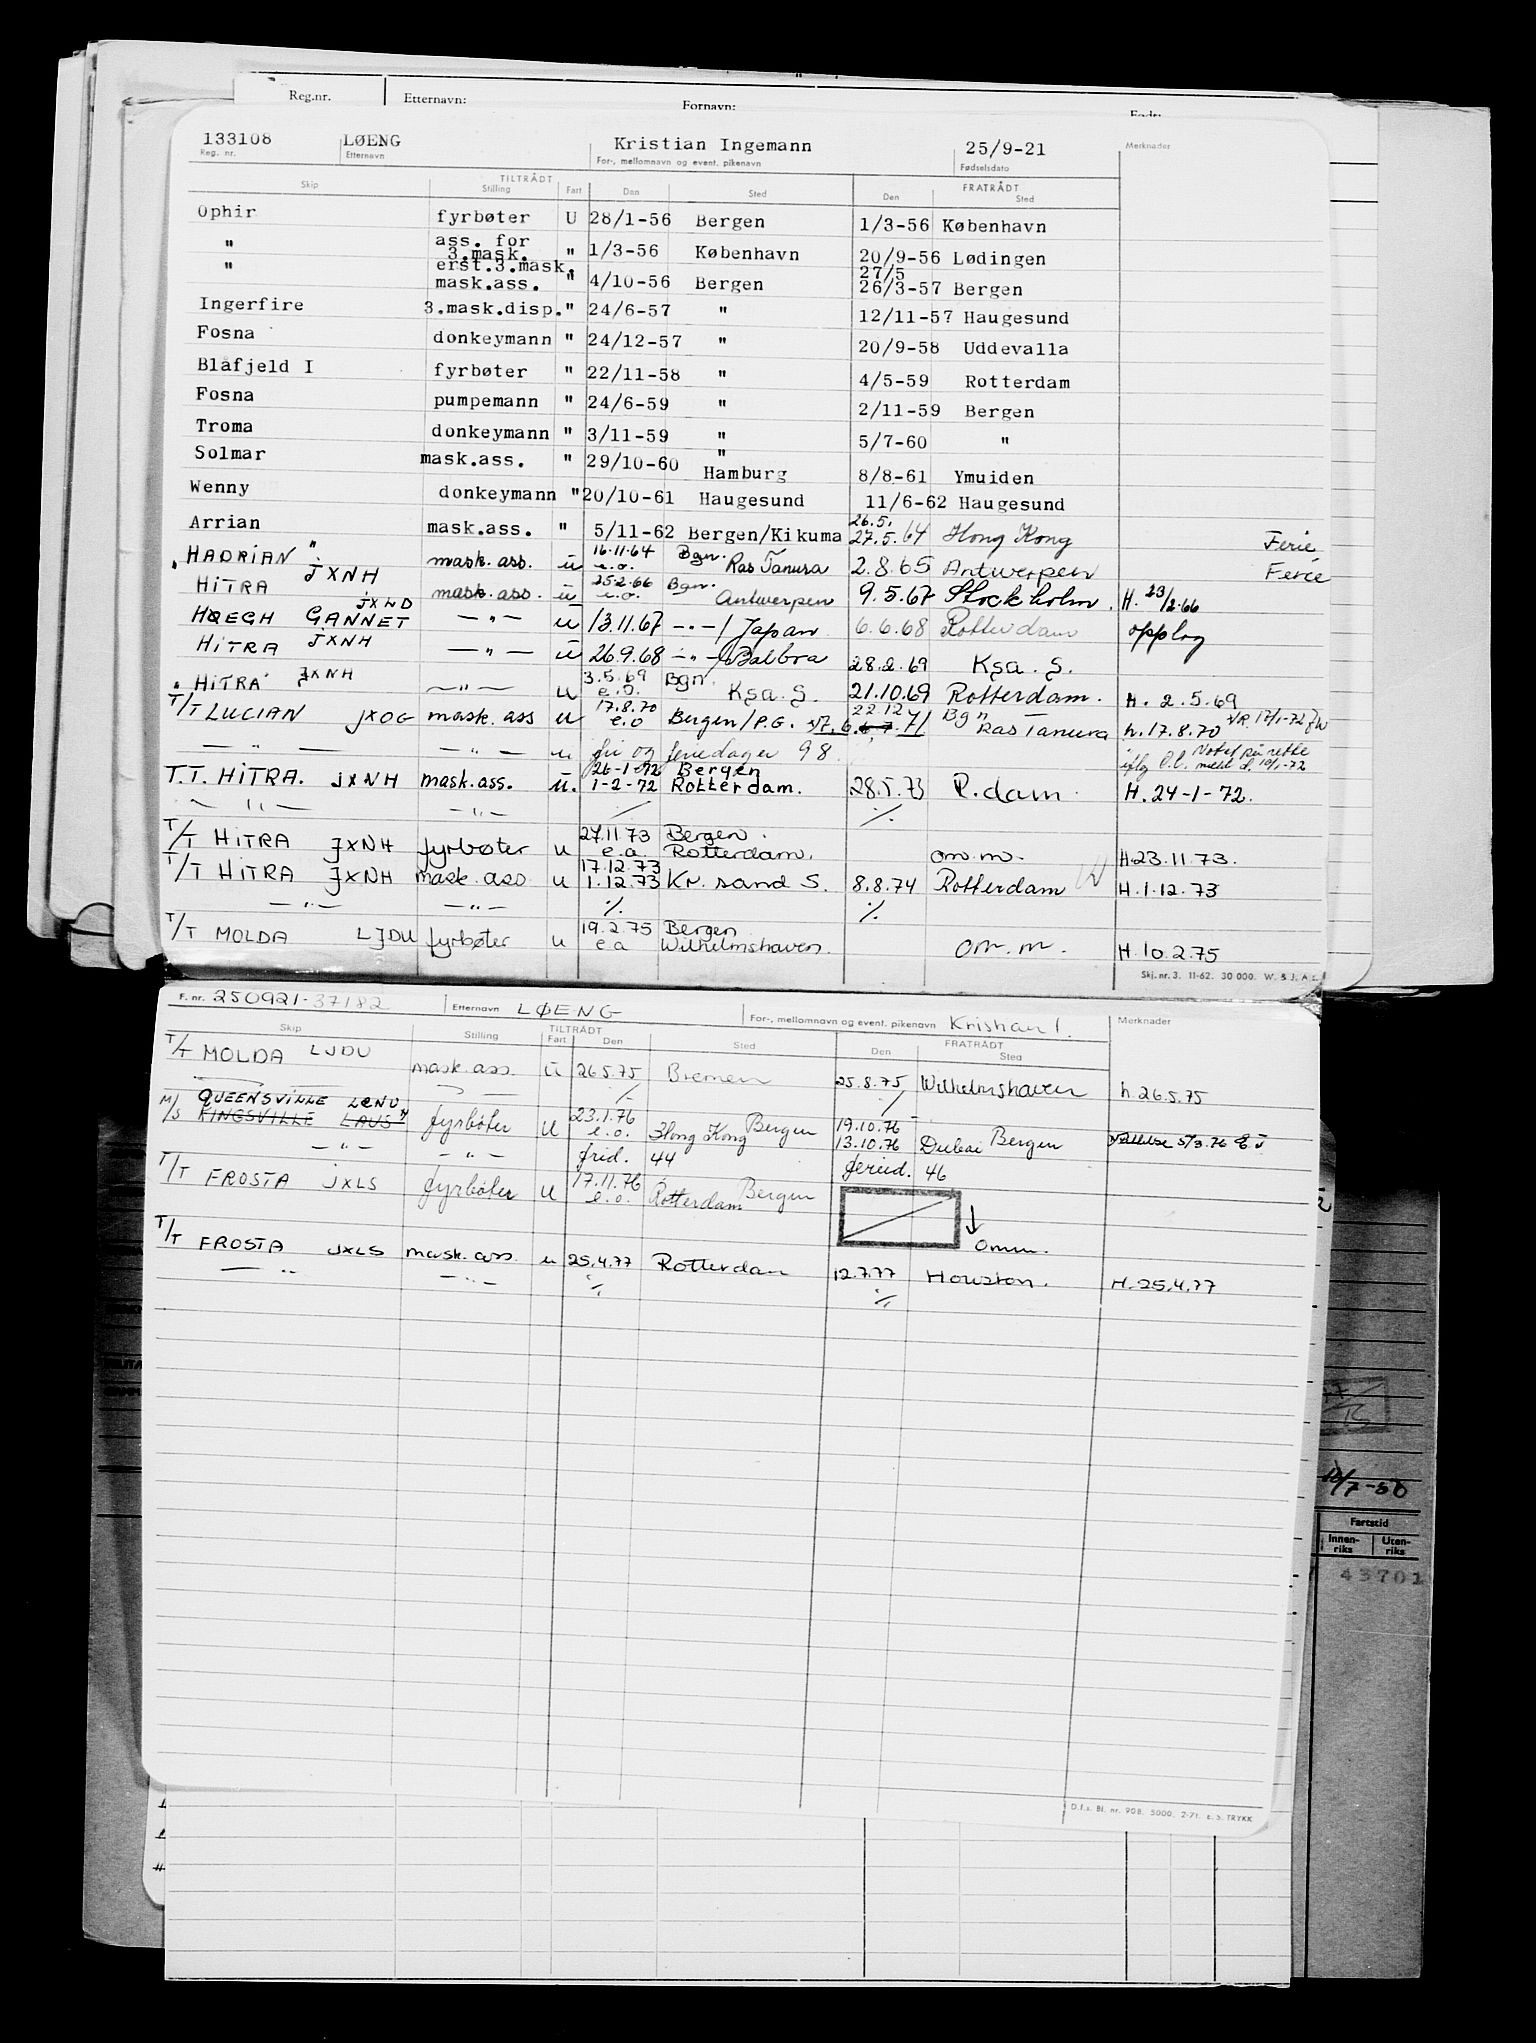 Reg.nr. Etternavn: Fornavn: Født:
133108 LØENG Kristian Ingemann 25/9-21 Merknader
Reg. nr. Etternavn For-, mellomnavn og event. pikenavn Fødselsdato
TILTRÅDT FRATRÅDT
Skip Stilling Fart Den Sted Den Sted
Ophir fyrbøter U 28/1-56 Bergen 1/3-56 København
" ass. for 3.mask. " 1/3-56 København 20/9-56 Lødingen
" erst.3.mask. 27/5
mask.ass. " 4/10-56 Bergen 26/3-57 Bergen
Ingerfire 3.mask.disp. " 24/6-57 " 12/11-57 Haugesund
Fosna donkeymann " 24/12-57 " 20/9-58 Uddevalla
Blåfjeld I fyrbøter " 22/11-58 " 4/5-59 Rotterdam
Fosna pumpemann " 24/6-59 " 2/11-59 Bergen
Troma donkeymann " 3/11-59 " 5/7-60 "
Solmar mask.ass. " 29/10-60 " Hamburg 8/8-61 Ymuiden
Wenny donkeymann " 20/10-61 Haugesund 11/6-62 Haugesund
Arrian mask.ass. " 5/11-62 Bergen/Kikuma 26.5. 27.5.64 Hong Kong Ferie
" HADRIAN " JXNH mask. ass. u 16.11.64 e.o. Bgn. Ras Tanura 2.8.65 Antwerpen Ferie
HITRA mask. ass. u 25.2.66 e.o. Bgn. Antwerpen 9.5.67 Stockholm. H. 23/2.66
HØEGH GANNET JXND — " — u 13.11.67 — " — / Japan 6.6.68 Rotterdam opplag
HITRA JXNH — " — u 26.9.68 — " — / Balboa 28.2.69 Ksa. S.
" HITRA JXNH — " — u 3.5.69 e.o. Bgn. Ksa. S. 21.10.69 Rotterdam. H. 2.5.69
T/T LUCIAN JXOG mask. ass u 17.8.70 e.o Bergen/P.G. 22.12 71 Bgn Ras Tanura h. 17.8.70
— " — — " — u fri og feriedager 98
T.T. HITRA. JXNH mask.ass. u. 26-1-72 Bergen
1-2-72 Rotterdam. 28.5.73 R.dam H. 24-1-72.
— " — — " — ./. ./.
T/T HITRA JXNH fyrbøter u 27.11.73 Bergen.
e.o. Rotterdam. om.m. H 23.11.73.
T/T HITRA JXNH mask. ass u 17.12.73
1.12.73 Kr. sand S. 8.8.74 Rotterdam H. 1.12.73
— " — — " — ./. ./.
T/T MOLDA LJDU fyrbøter u 19.2.75 Bergen
e.o Wilhelmshaven. om.m. H. 10.2.75
Skj. nr. 3. 11-62. 30 000. W. & J. A.s.
F. nr. 250921-37182 Etternavn LØENG For-, mellomnavn og event. pikenavn Kristian I. Merknader
TILTRÅDT FRATRÅDT
Skip Stilling Fart Den Sted Den Sted
T/T MOLDA LJDU mask. ass. u 26.5.75 Bremen 25.8.75 Wilhelmshaven h 26.5.75
QUEENSVILLE LENU
M/S KINGSVILLE LAUS fyrbøter u 23.1.76 e.o. Hong Kong Bergen 19.10.76 13.10.76 Dubai Bergen 5/3.76
— " — — " — frid. 44 feried. 46
T/T FROSTA JXLS fyrbøter u 17.11.76 e.o. Rotterdam Bergen
omm.
T/T FROSTA JXLS mask. ass. u 25.4.77 Rotterdam 12.7.77 Houston. H. 25.4.77
— " — — " — ./. ./.
12/7-50
Fartstid
Innenriks Utenriks
43701
D.f.s. Bl. nr. 90B. 5000. 2-71. E. S. TRYKK